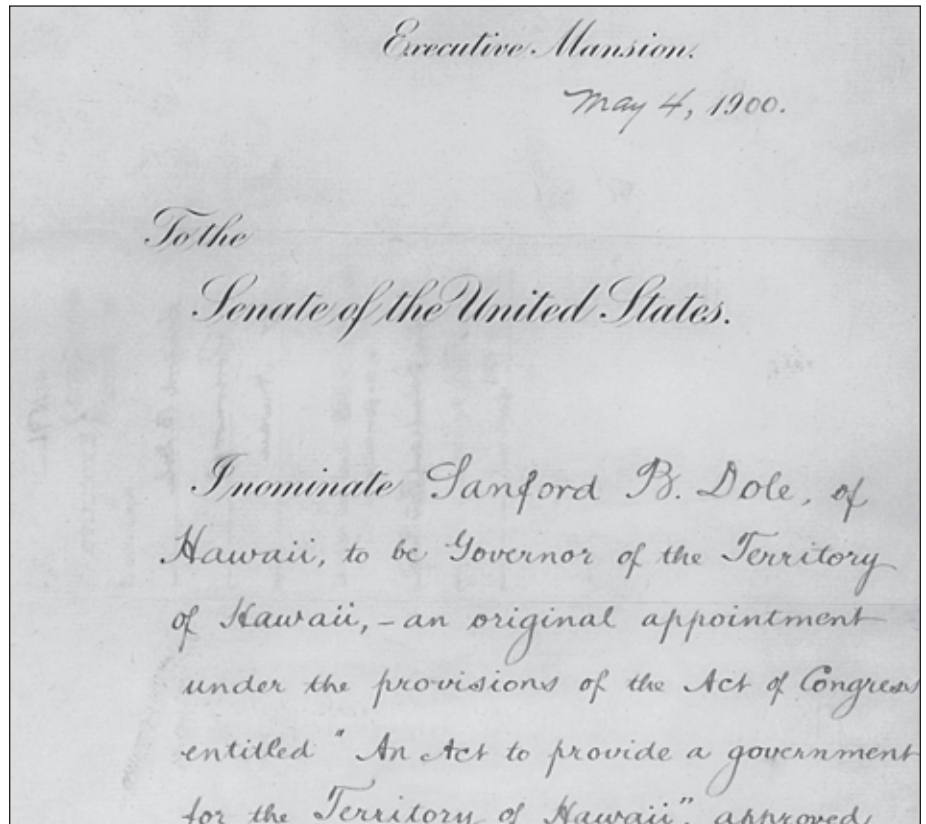 Executive Mansion.
May 4, 1900.
To the
Senate of the United States.
I nominate Sanford B. Dole, of
Hawaii, to be Governor of the Territory
of Hawaii, - an original appointment
under the provisions of the Act of Congress
entitled "An Act to provide a government
for the Territory of Hawaii", approved